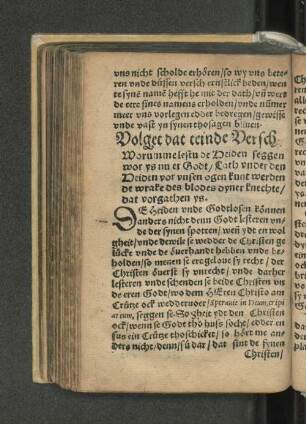 vns nicht scholde erhören / so wy vns bete-
ren vnde düssen versch ernstlick beden / wen
te syne namē hefft he mit der dath / vñ werd
de eere sines namens erholden / vnde nümer
meer vns vorlegen edder bedregen / gewisse
vnde vast yn synen thosagen bliuen.
Volget dat teinde Versch.
Worumme lestu de Heiden seggen
wor ys nu er Godt / Lath vnder den
Heiden vor vnsen ogen kunt werden
de wrake des blodes dyner knechte /
dat vorgathen ys.
DE Heiden vnde Godtlosen können
anders nicht denn Godt lesteren vn-
de der synen spotten / wen ydt en wol
gheit / vnde dewile se wedder de Christen ge
lücke vnde de öuerhandt hebben vnde be-
holden / so menen se ere geloue sy recht / der
Christen öuerst sy vnrecht / vnde darher
lesteren vnde schenden se beide Christen vn
de eren Godt / wo dem HEren Christo am
Crütze ock weddervoer / Sperauit in Deum, eripi
at eum, seggen se. So gheit ydt den Christen
ock / wenn se Godt tho huß socht / edder en
sus ein Crütze thoschicket / so hört me an-
ders nicht / denn / sü dar / dat sint de fynen
Christen /